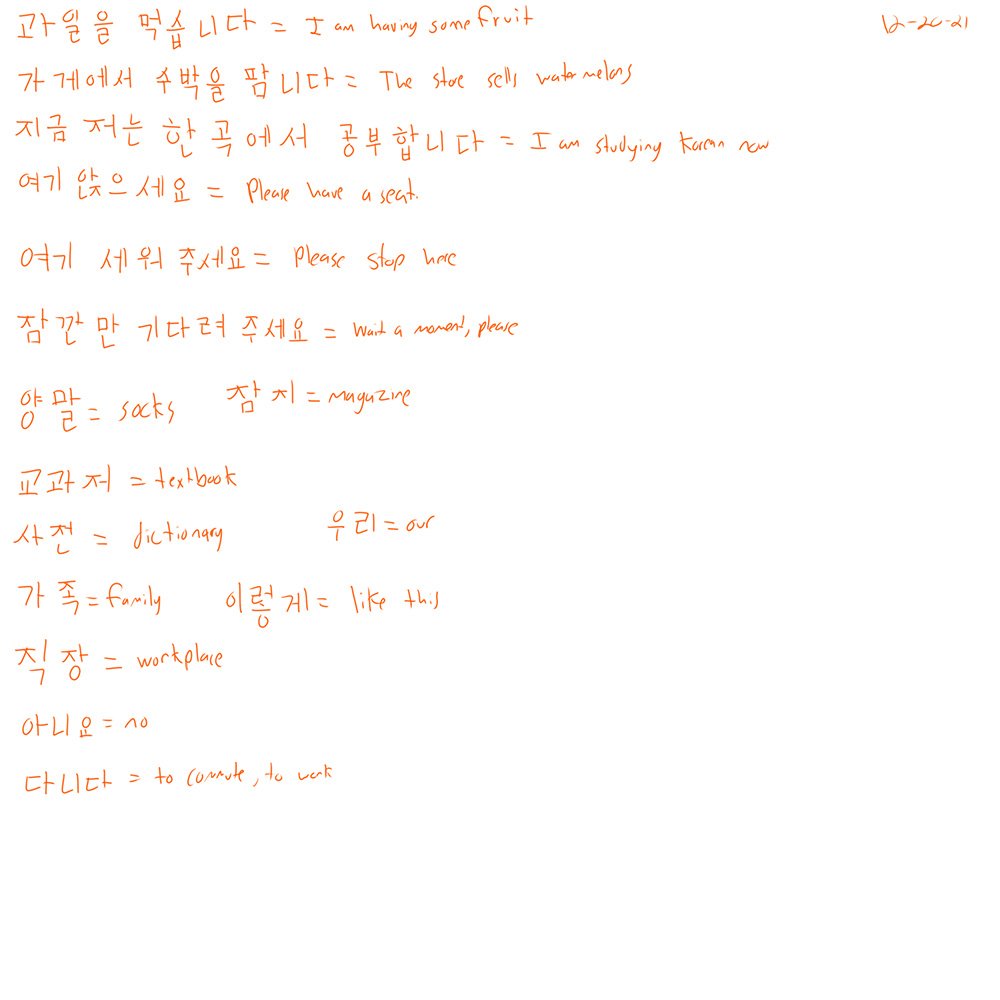 과일을 먹습니다 = I am having some fruit 12-20-21
가게에서 수박을 팜니다 = The store sells watermelons
지금 저는 한곡에서 공부합니다 = I am studying Korean now
여기 앉으세요 = Please have a seat.
여기 세워 주세요 = Please stop here
잠깐만 기다려 주세요 = Wait a moment, please
양말 = socks 잠지 = magazine
교과저 = textbook
사전 = dictionary 우리 = our
가족 = family 이렇게 = like this
직장 = workplace
아니요 = no
다니다 = to commute, to work